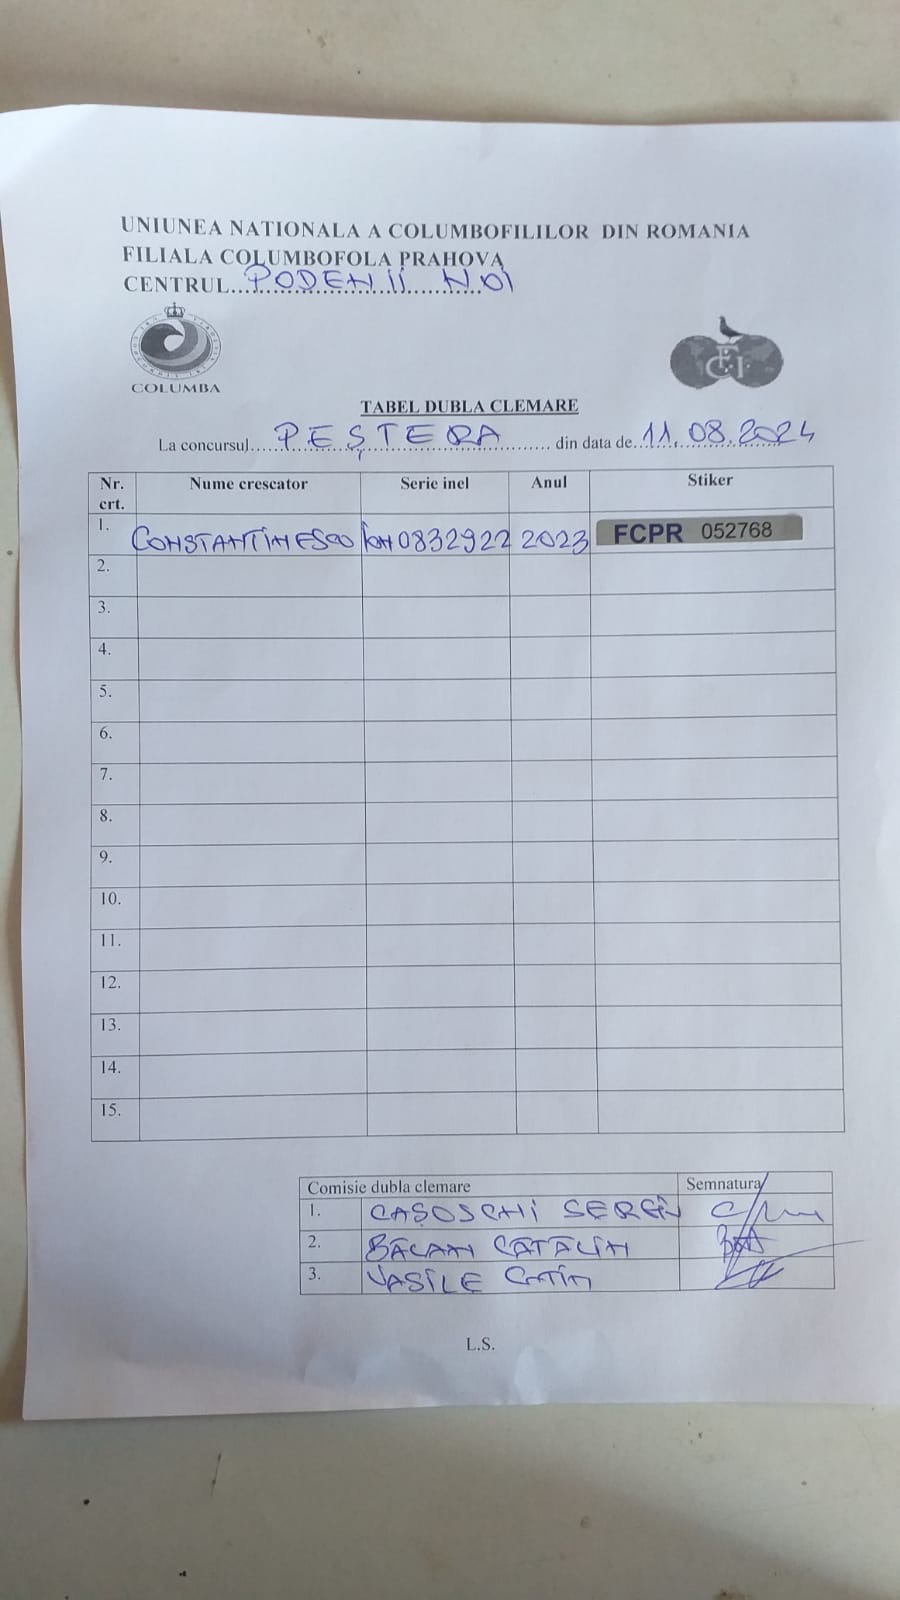 UNIUNEA NATIONALA A COLUMBOFILILOR DIN ROMANIA
FILIALA COLUMBOFOLA PRAHOVA
CENTRUL....PODENII NOI
COLUMBA
FCI
TABEL DUBLA CLEMARE
La concursul....PEȘTERA.... din data de..11.08.2024
Nr. crt. Nume crescator Serie inel Anul Stiker
1. CONSTANTINESCU ION 0832922 2023 FCPR 052768
2.
3.
4.
5.
6.
7.
8.
9.
10.
11.
12.
13.
14.
15.
Comisie dubla clemare Semnatura
1. CAȘOSCHI SERGIU
2. BĂLAN CĂTĂLIN
3. VASILE
L.S.